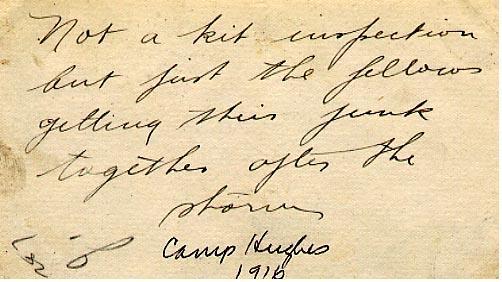 Not a kit inspection
but just the fellows
getting their junk
together after the
storm
Camp Hughes
1916